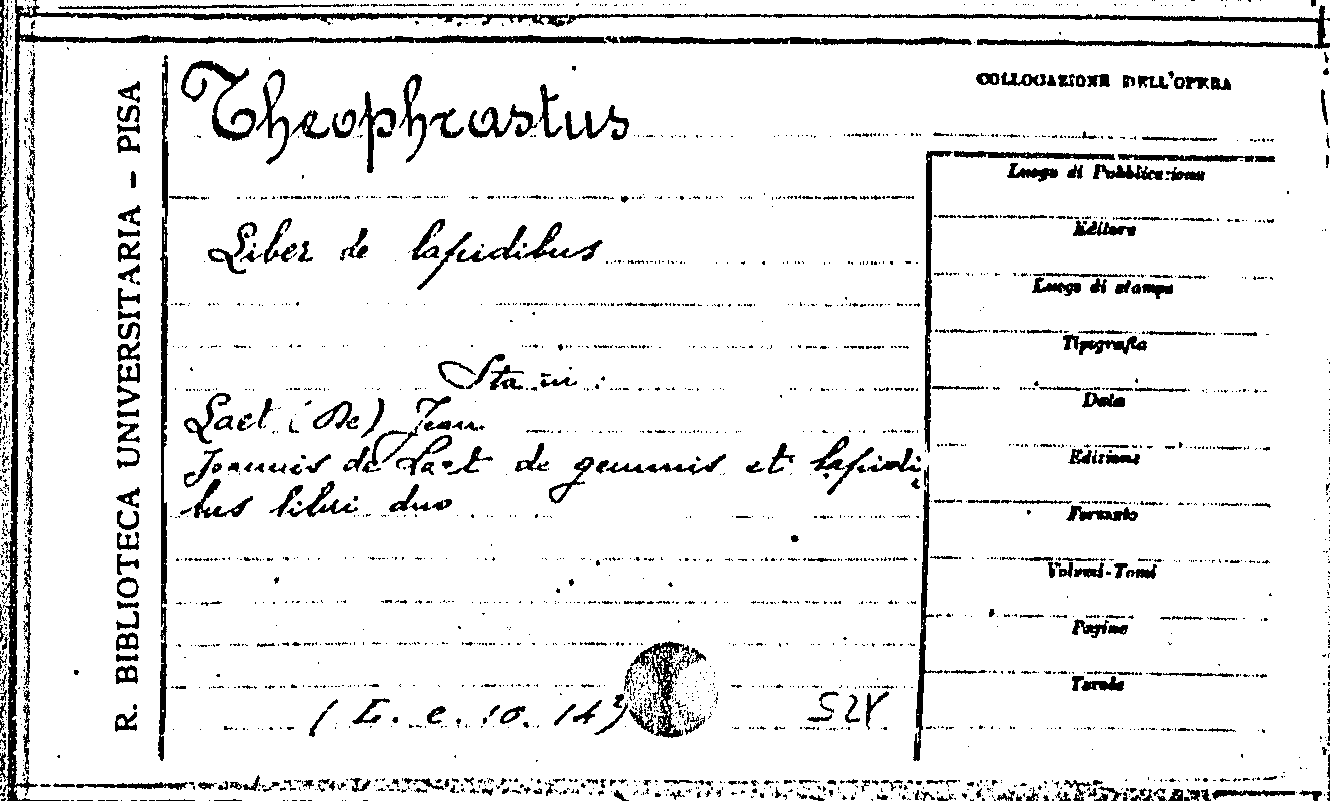 R. BIBLIOTECA UNIVERSITARIA – PISA
Theophrastus
Liber de lapidibus
Sta in:
Laet (De) Jean
Joannis de Laet de gemmis et lapidi
bus libri duo
COLLOCAZIONE DELL'OPERA
Luogo di Pubblicazione
Editore
Luogo di stampa
Tipografia
Data
Edizione
Formato
Volumi-Tomi
Pagine
Tavole